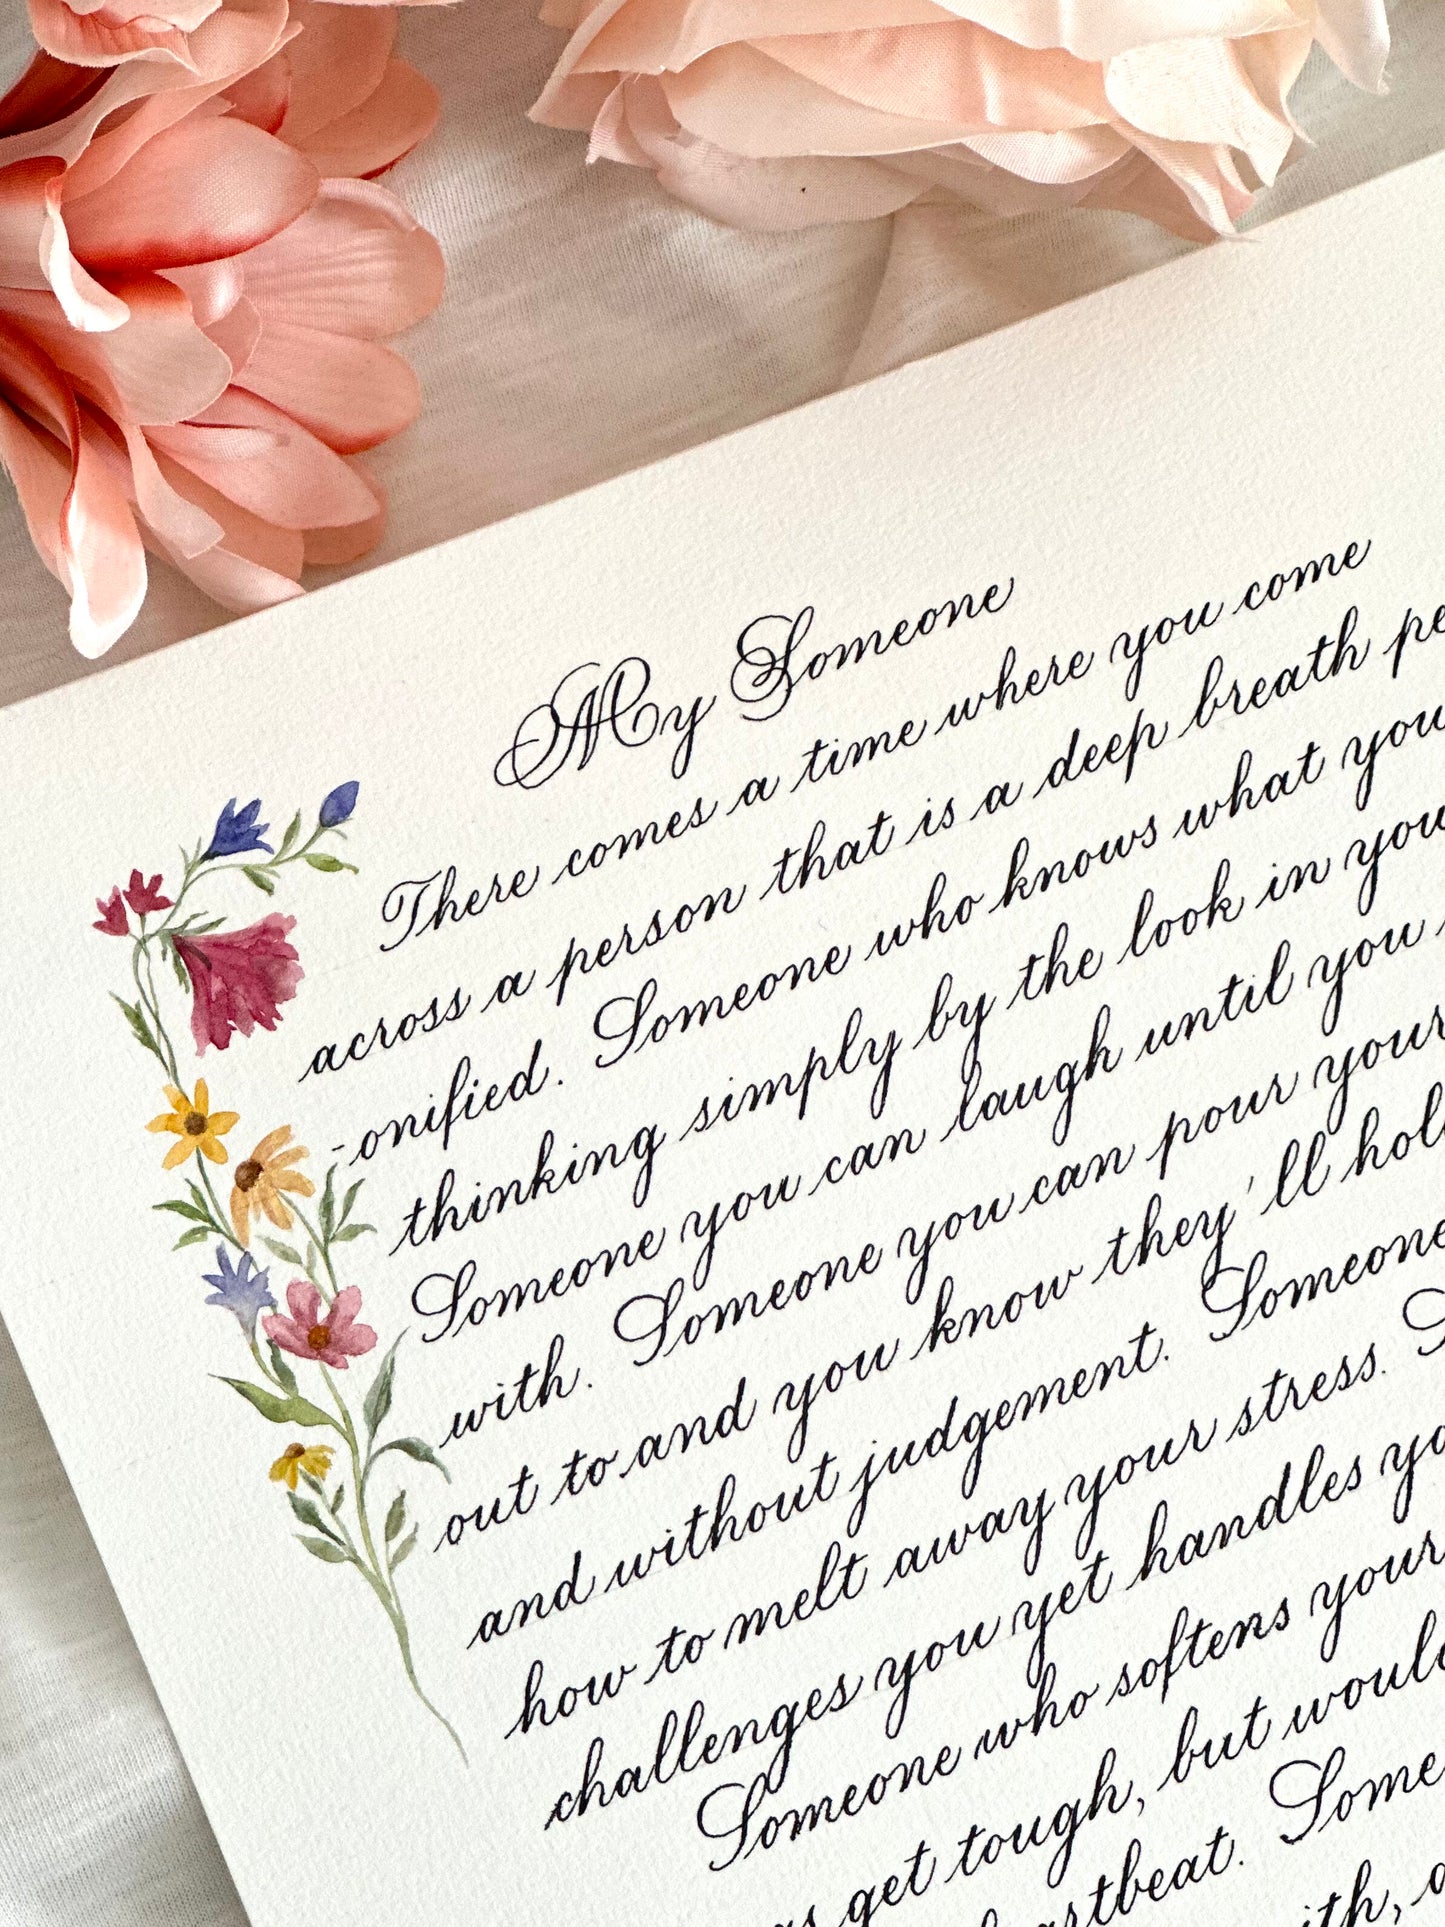 My Someone
There comes a time where you come
across a person that is a deep breath pe
-onified. Someone who knows what you
thinking simply by the look in you
Someone you can laugh until you
with. Someone you can pour your
out to and you know they'll hol
and without judgement. Someone
how to melt away your stress.
challenges you yet handles yo
Someone who softens your
get tough, but would
rtbeat. Some
ith,